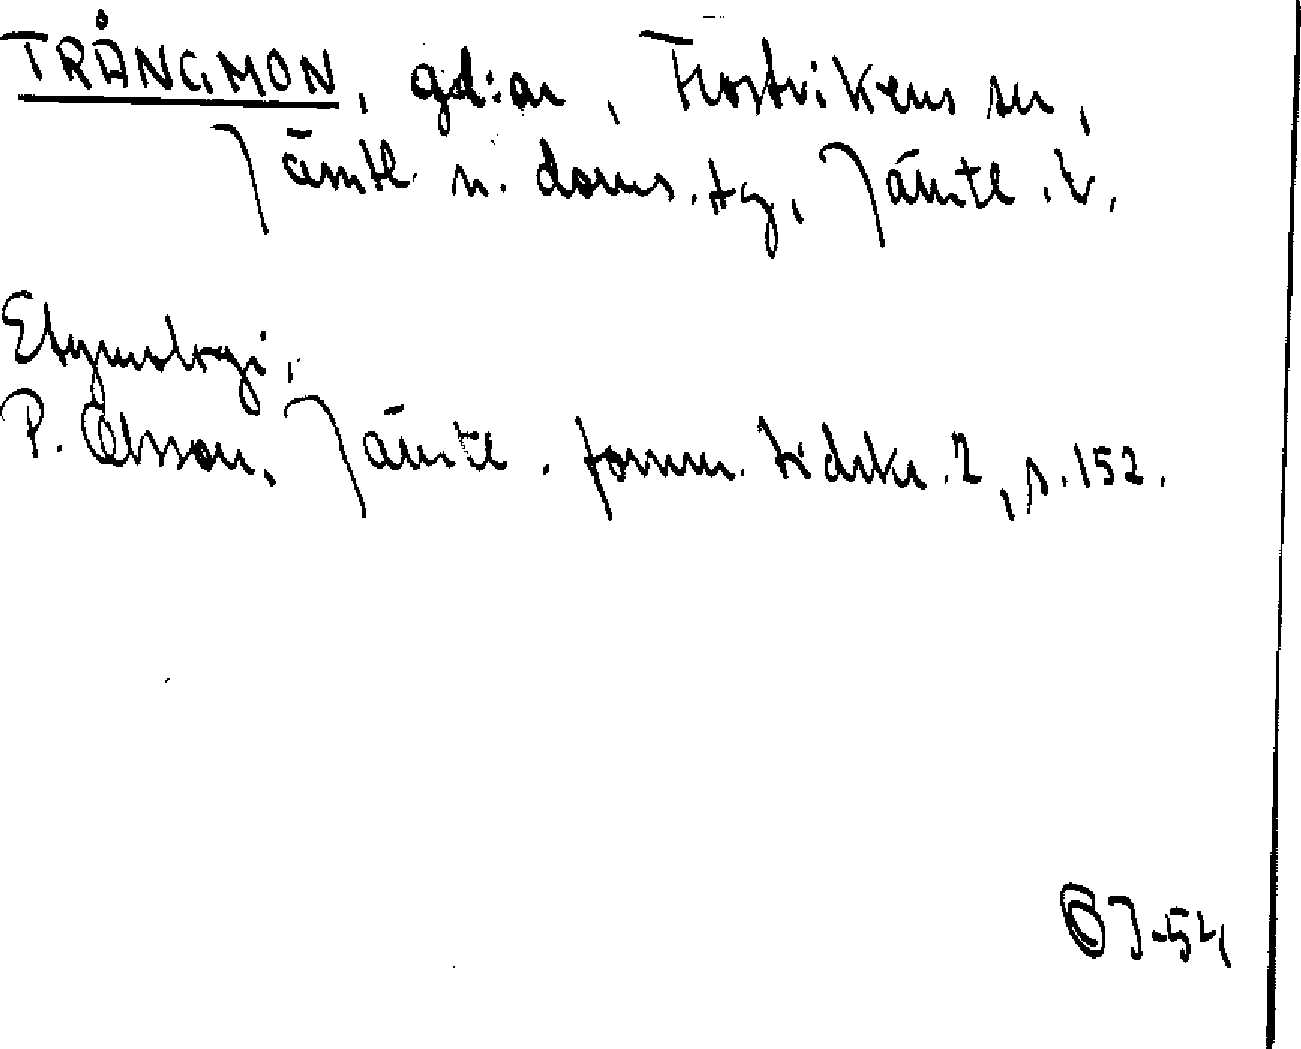 TRÅNGMON, gd:ar, Frostvikens sn,
Jämtl. n. doms.tg, Jämtl. l.
Etymologi.
P. Olsson, Jämtl. fornm. tidskr. 2, s. 152.
-54